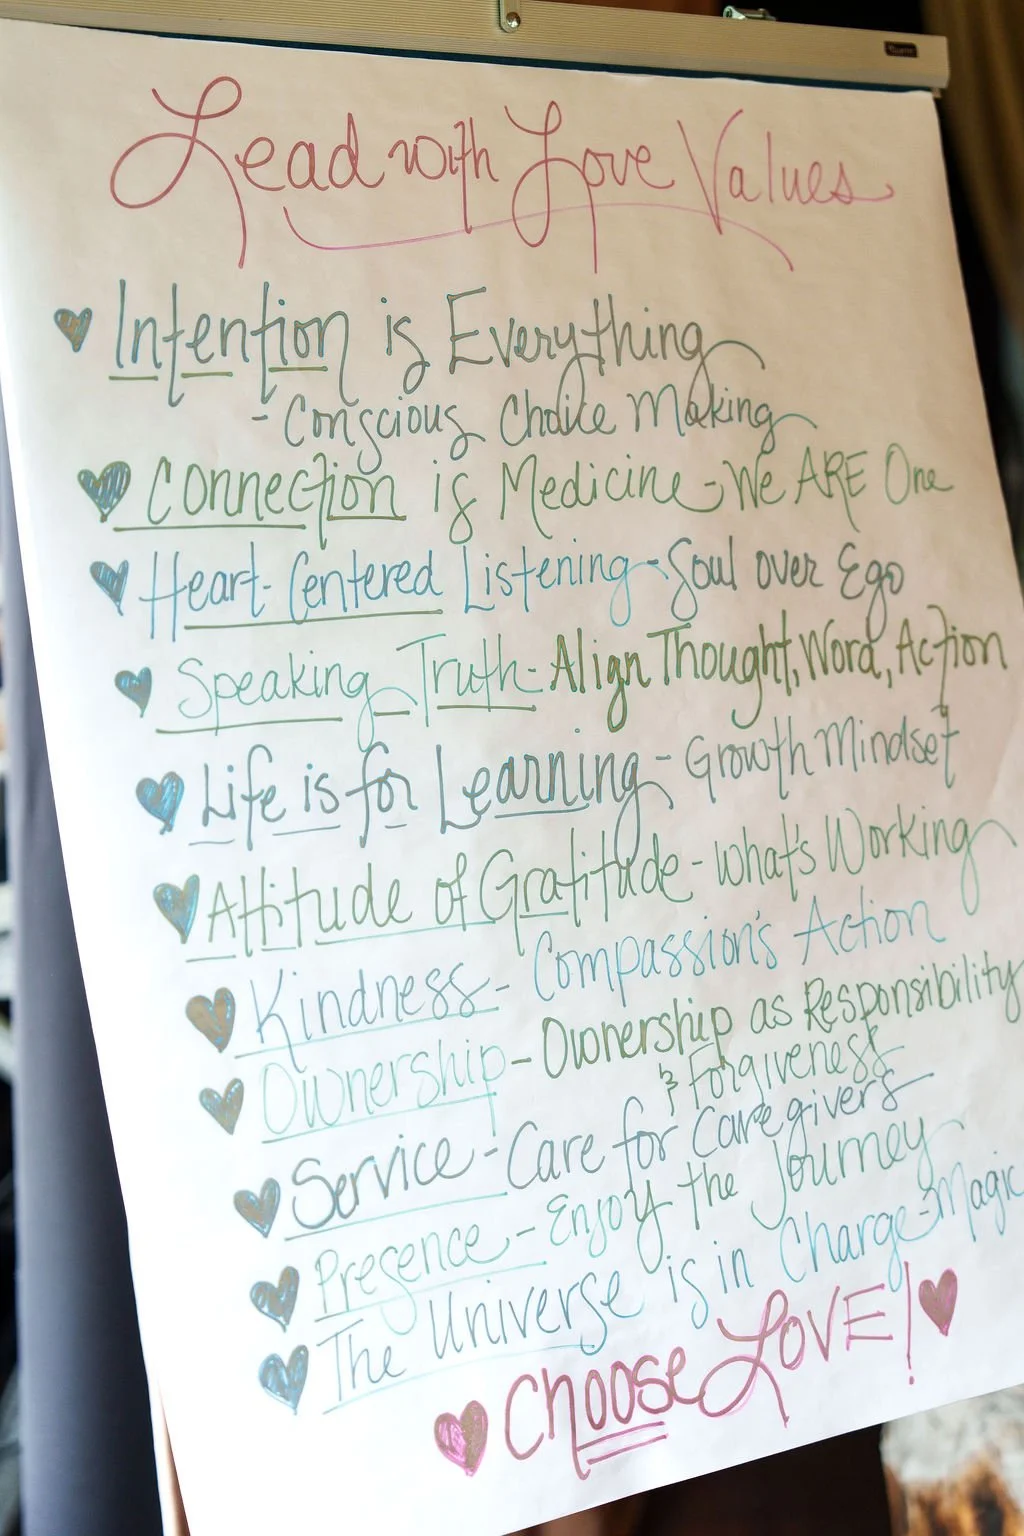 Lead with Love Values
Intention is Everything
- Conscious Choice Making
Connection is Medicine - We ARE One
Heart-Centered Listening - Soul over Ego
Speaking Truth - Align Thought, Word, Action
Life is for Learning - Growth Mindset
Attitude of Gratitude - What's Working
Kindness - Compassion's Action
Ownership - Ownership as Responsibility
& Forgiveness
Service - Care for Caregivers
Presence - Enjoy the Journey
The Universe is in Charge - Magic
Choose LOVE!